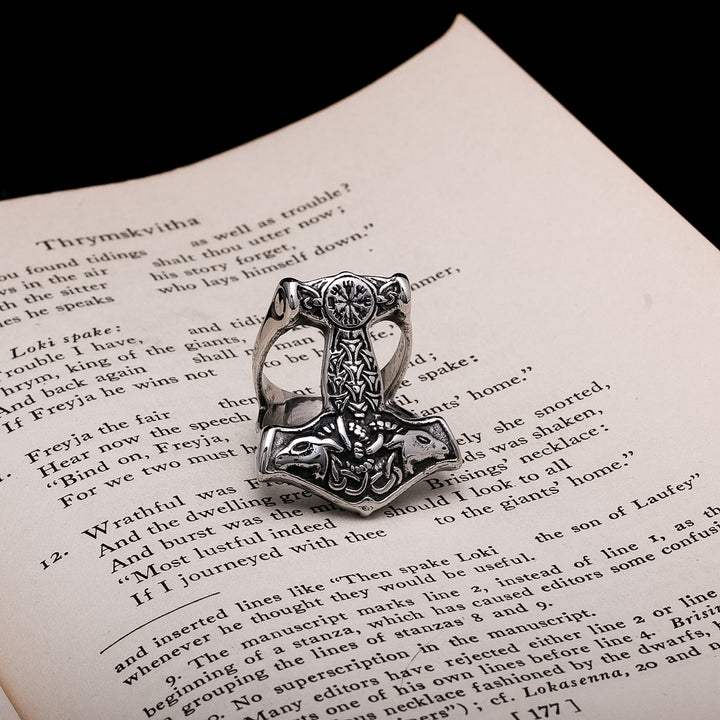 Thrymskvitha
ou found tidings as well as trouble?
in the air shalt thou utter now;
th the sitter his story forget,
he speaks who lays himself down."
Loki spake:
rouble I have, and tidi
hrym, king of the giants, omer,
And back again shall no
If Freyja he wins not to be
spake:
Freyja the fair then
Hear now the speech
"Bind on, Freyja, ants' home."
For we two must h
12. Wrathful was F ly she snorted,
And the dwelling gre ds was shaken,
And burst was the mi Brisings' necklace:
"Most lustful indeed should I look to all
If I journeyed with thee to the giants' home."
and inserted lines like "Then spake Loki the son of Laufey"
whenever he thought they would be useful.
9. The manuscript marks line 2, instead of line 1, as th
beginning of a stanza, which has caused editors some confusi
n grouping the lines of stanzas 8 and 9.
No superscription in the manuscript.
Many editors have rejected either line 2 or line
ts one of his own lines before line 4. Brisin
ous necklace fashioned by the dwarfs,
ners"); cf. Lokasenna, 20 and n
[ 177 ]